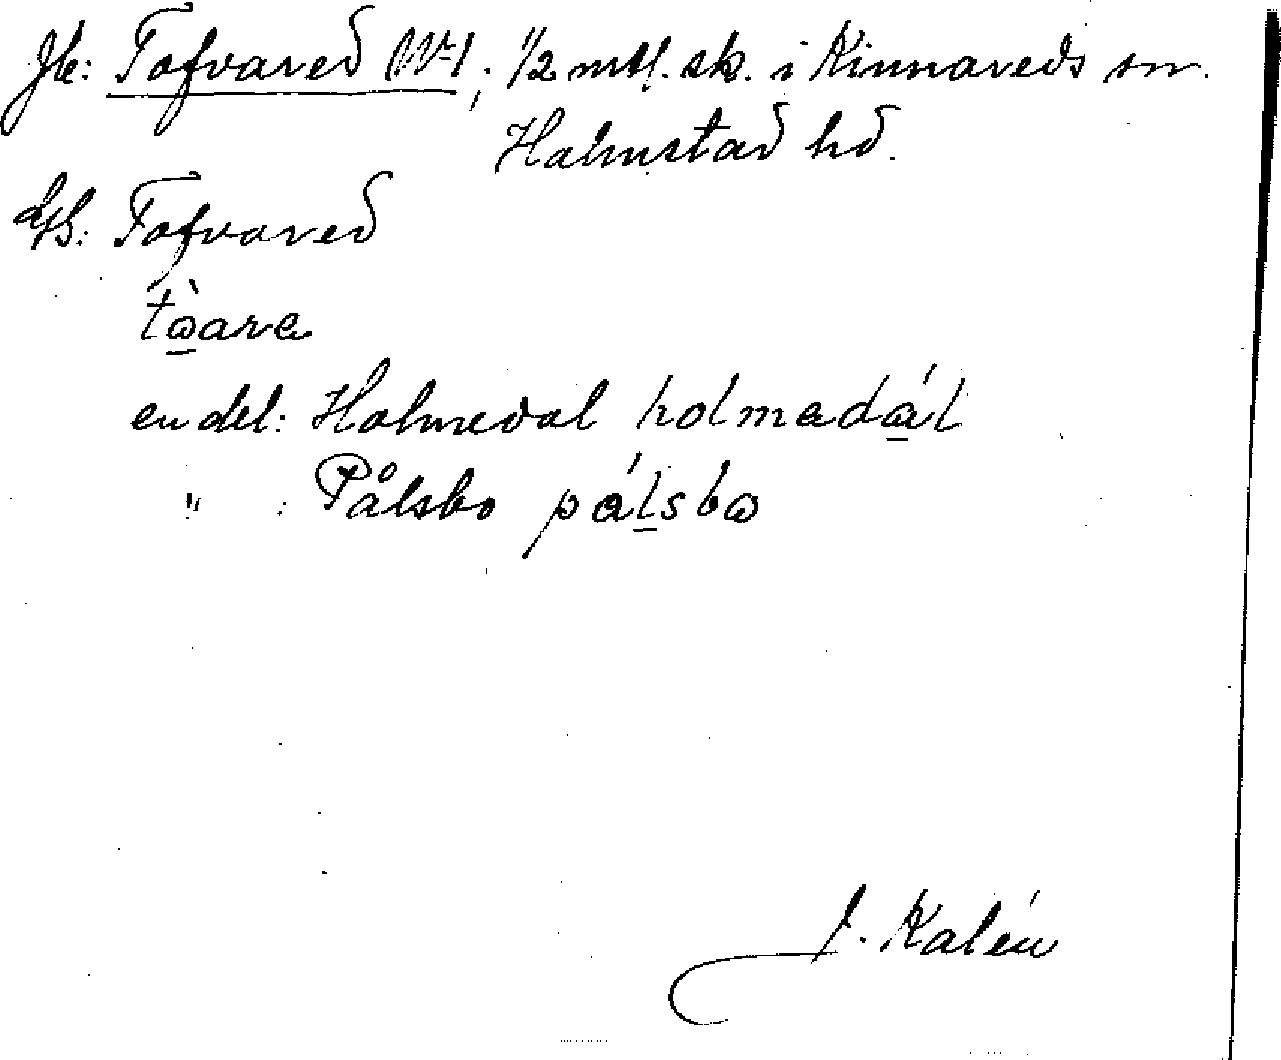 Jb: Tofvared No 1; 1/2 mtl. sk. i Kinnareds sn.
Halmstad hd.
Tofvared
tòara
en del: Holmedal holmadál
" : Pålsbo pálsbo
J. Kalén